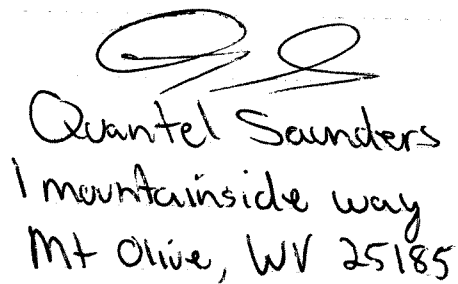 Quantel Saunders
1 mountainside way
Mt Olive, WV 25185